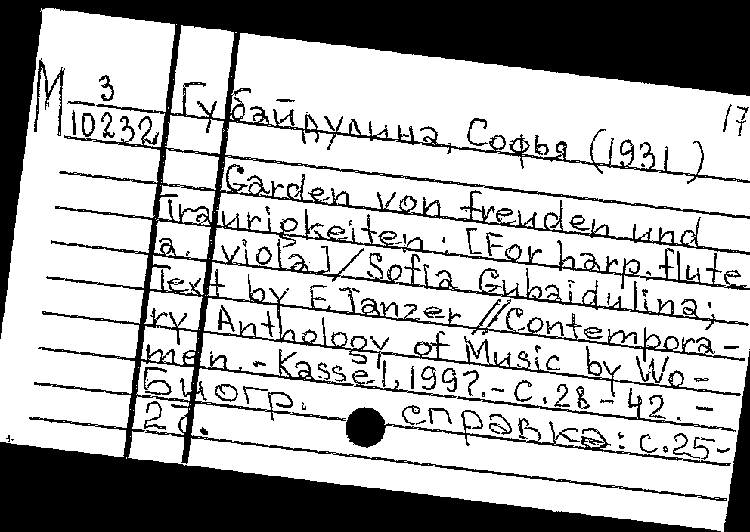 17
М 3
10232
Губайдулина, Софья (1931 )
Garden von freuden und
Traurigkeiten: [For harp, flute
a. viola] / Sofia Gubaidulina;
Text by F. Tanzer // Contempora-
ry Anthology of Music by Wo-
men. - Kassel, 1997. - С. 28 - 42. -
Биогр. справка: с. 25-
27.